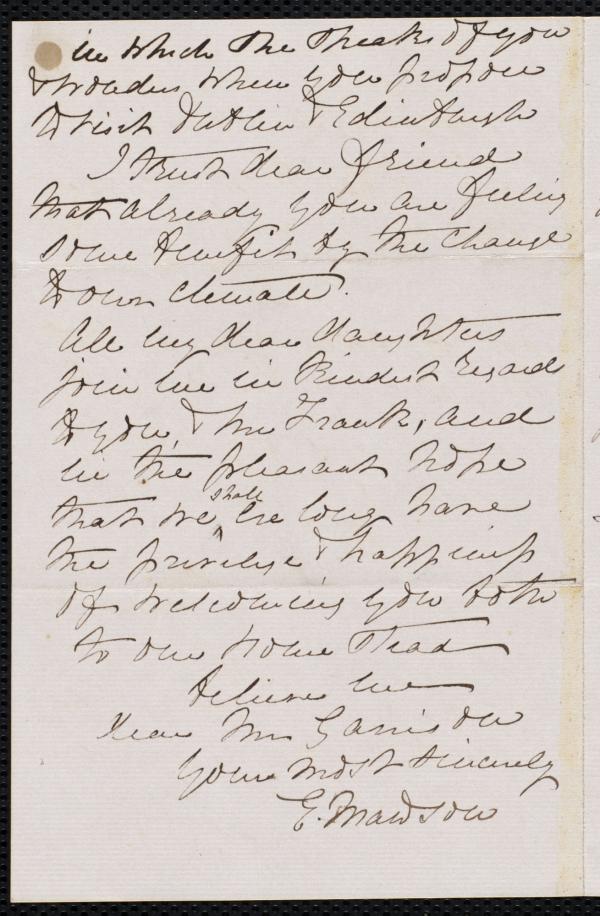 in which she speaks of you
& wonders when you propose
to visit Dublin & Edinburgh
I trust dear friend
that already you are feeling
some benefit by the change
to our climate.
All my dear daughters
join me in kindest regards
to you, & Mr Frank, and
in the pleasant hope
that we shall ere long have
the privilege & happiness
of welcoming you both
to our home stead
believe me
dear Mr Garrison
Yours most sincerely
E. Mawson